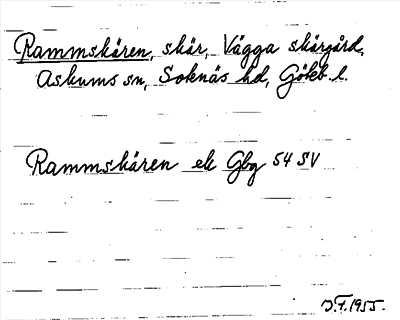 Rammskären, skär, Vägga skärgård,
Askums sn, Sotenäs hd, Götebl.
Rammskären ek Gbg 54 SV
J.F. 1955.